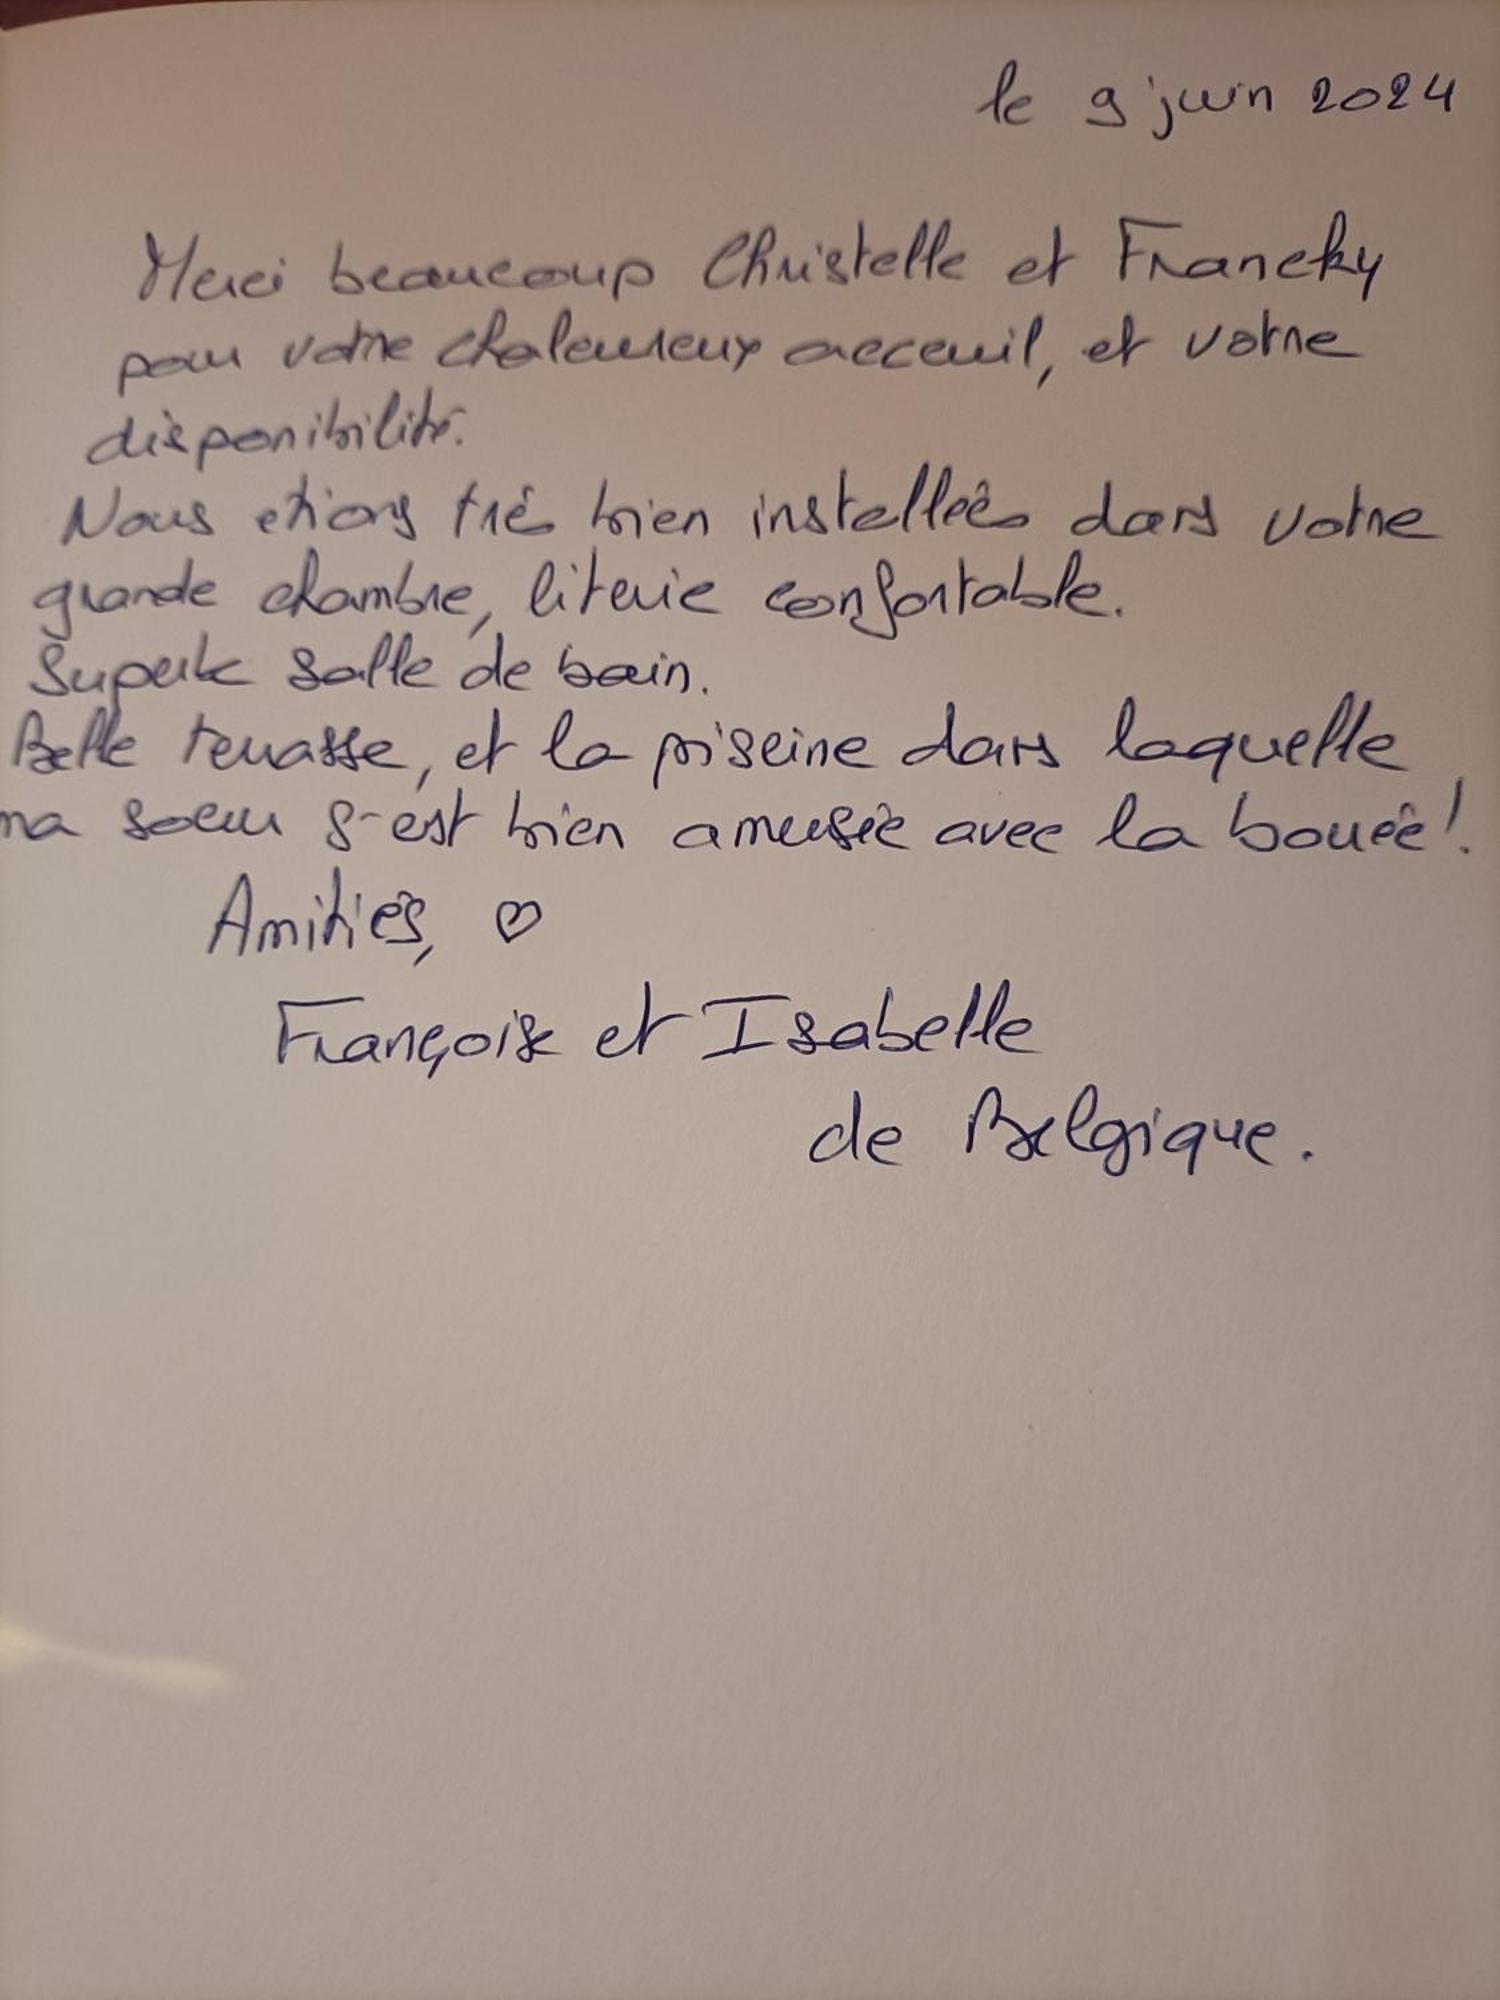 le 9 juin 2024
Merci beaucoup Christelle et Francky
pour votre chaleureux acceuil, et votre
disponibilité.
Nous etions très bien installées dans votre
grande chambre, literie confortable.
Superbe salle de bain.
Belle terrasse, et la piscine dans laquelle
ma soeur s'est bien amusée avec la bouée !
Amitiés, ♡
Françoise et Isabelle
de Belgique.